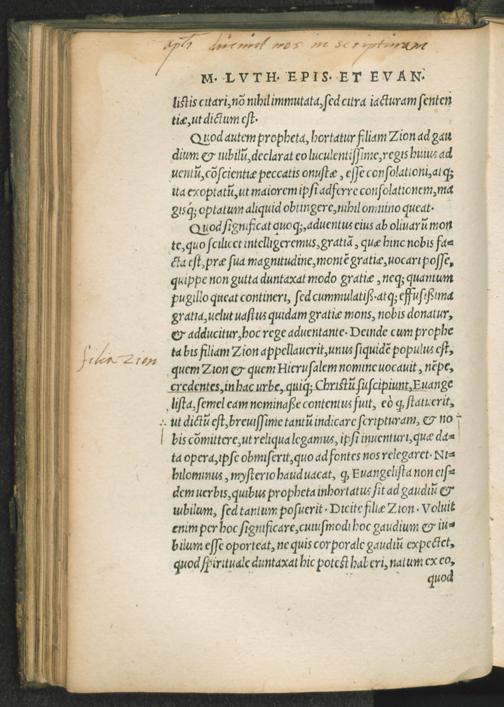 in scripturam
M. LVTH. EPIS. ET EVAN.
listis citari, nõ nihil immutata, sed citra iacturam senten
tiæ, ut dictum est.
Quod autem propheta, hortatur filiam Zion ad gau
dium & iubilũ, declarat eo luculentissime, regis huius ad
uentũ, cõscientiæ peccatis onustæ, esse consolationi, atq;
ita exoptatũ, ut maiorem ipsi adferre consolationem, ma
gisq; optatum aliquid obtingere, nihil omnino queat.
Quod significat quoq;, aduentus eius ab oliuarũ mon
te, quo scilicet intelligeremus, gratiã, quæ hinc nobis fa-
cta est, præ sua magnitudine, montẽ gratiæ, uocari posse,
quippe non gutta duntaxat modo gratiæ, neq; quantum
pugillo queat contineri, sed cummulatiß. atq; effusißima
gratia, uelut uastus quidam gratiæ mons, nobis donatur,
& adducitur, hoc rege aduentante. Deinde cum prophe
ta bis filiam Zion appellauerit, unus siquidẽ populus est,
quem Zion & quem Hierusalem nomine uocauit, nẽpe,
filia Zion
credentes, in hac urbe, quiq; Christũ suscipiunt, Euange
lista, semel eam nominaße contentus fuit, eò q, statuerit,
ut dictũ est, breuissime tantũ indicare scripturam, & no
bis cõmittere, ut reliqua legamus, ipsi inuenturi, quæ da-
ta opera, ipse obmiserit, quo ad fontes nos relegaret. Ni-
hilominus, mysterio haud uacat, q, Euangelista non eis-
dem uerbis, quibus propheta inhortatus sit ad gaudiũ &
iubilum, sed tantum posuerit. Dicite filiæ Zion. Voluit
enim per hoc significare, cuiusmodi hoc gaudium & iu-
bilum esse oporteat, ne quis corporale gaudiũ expectet,
quod spirituale duntaxat hic potest haberi, natum ex eo,
quod